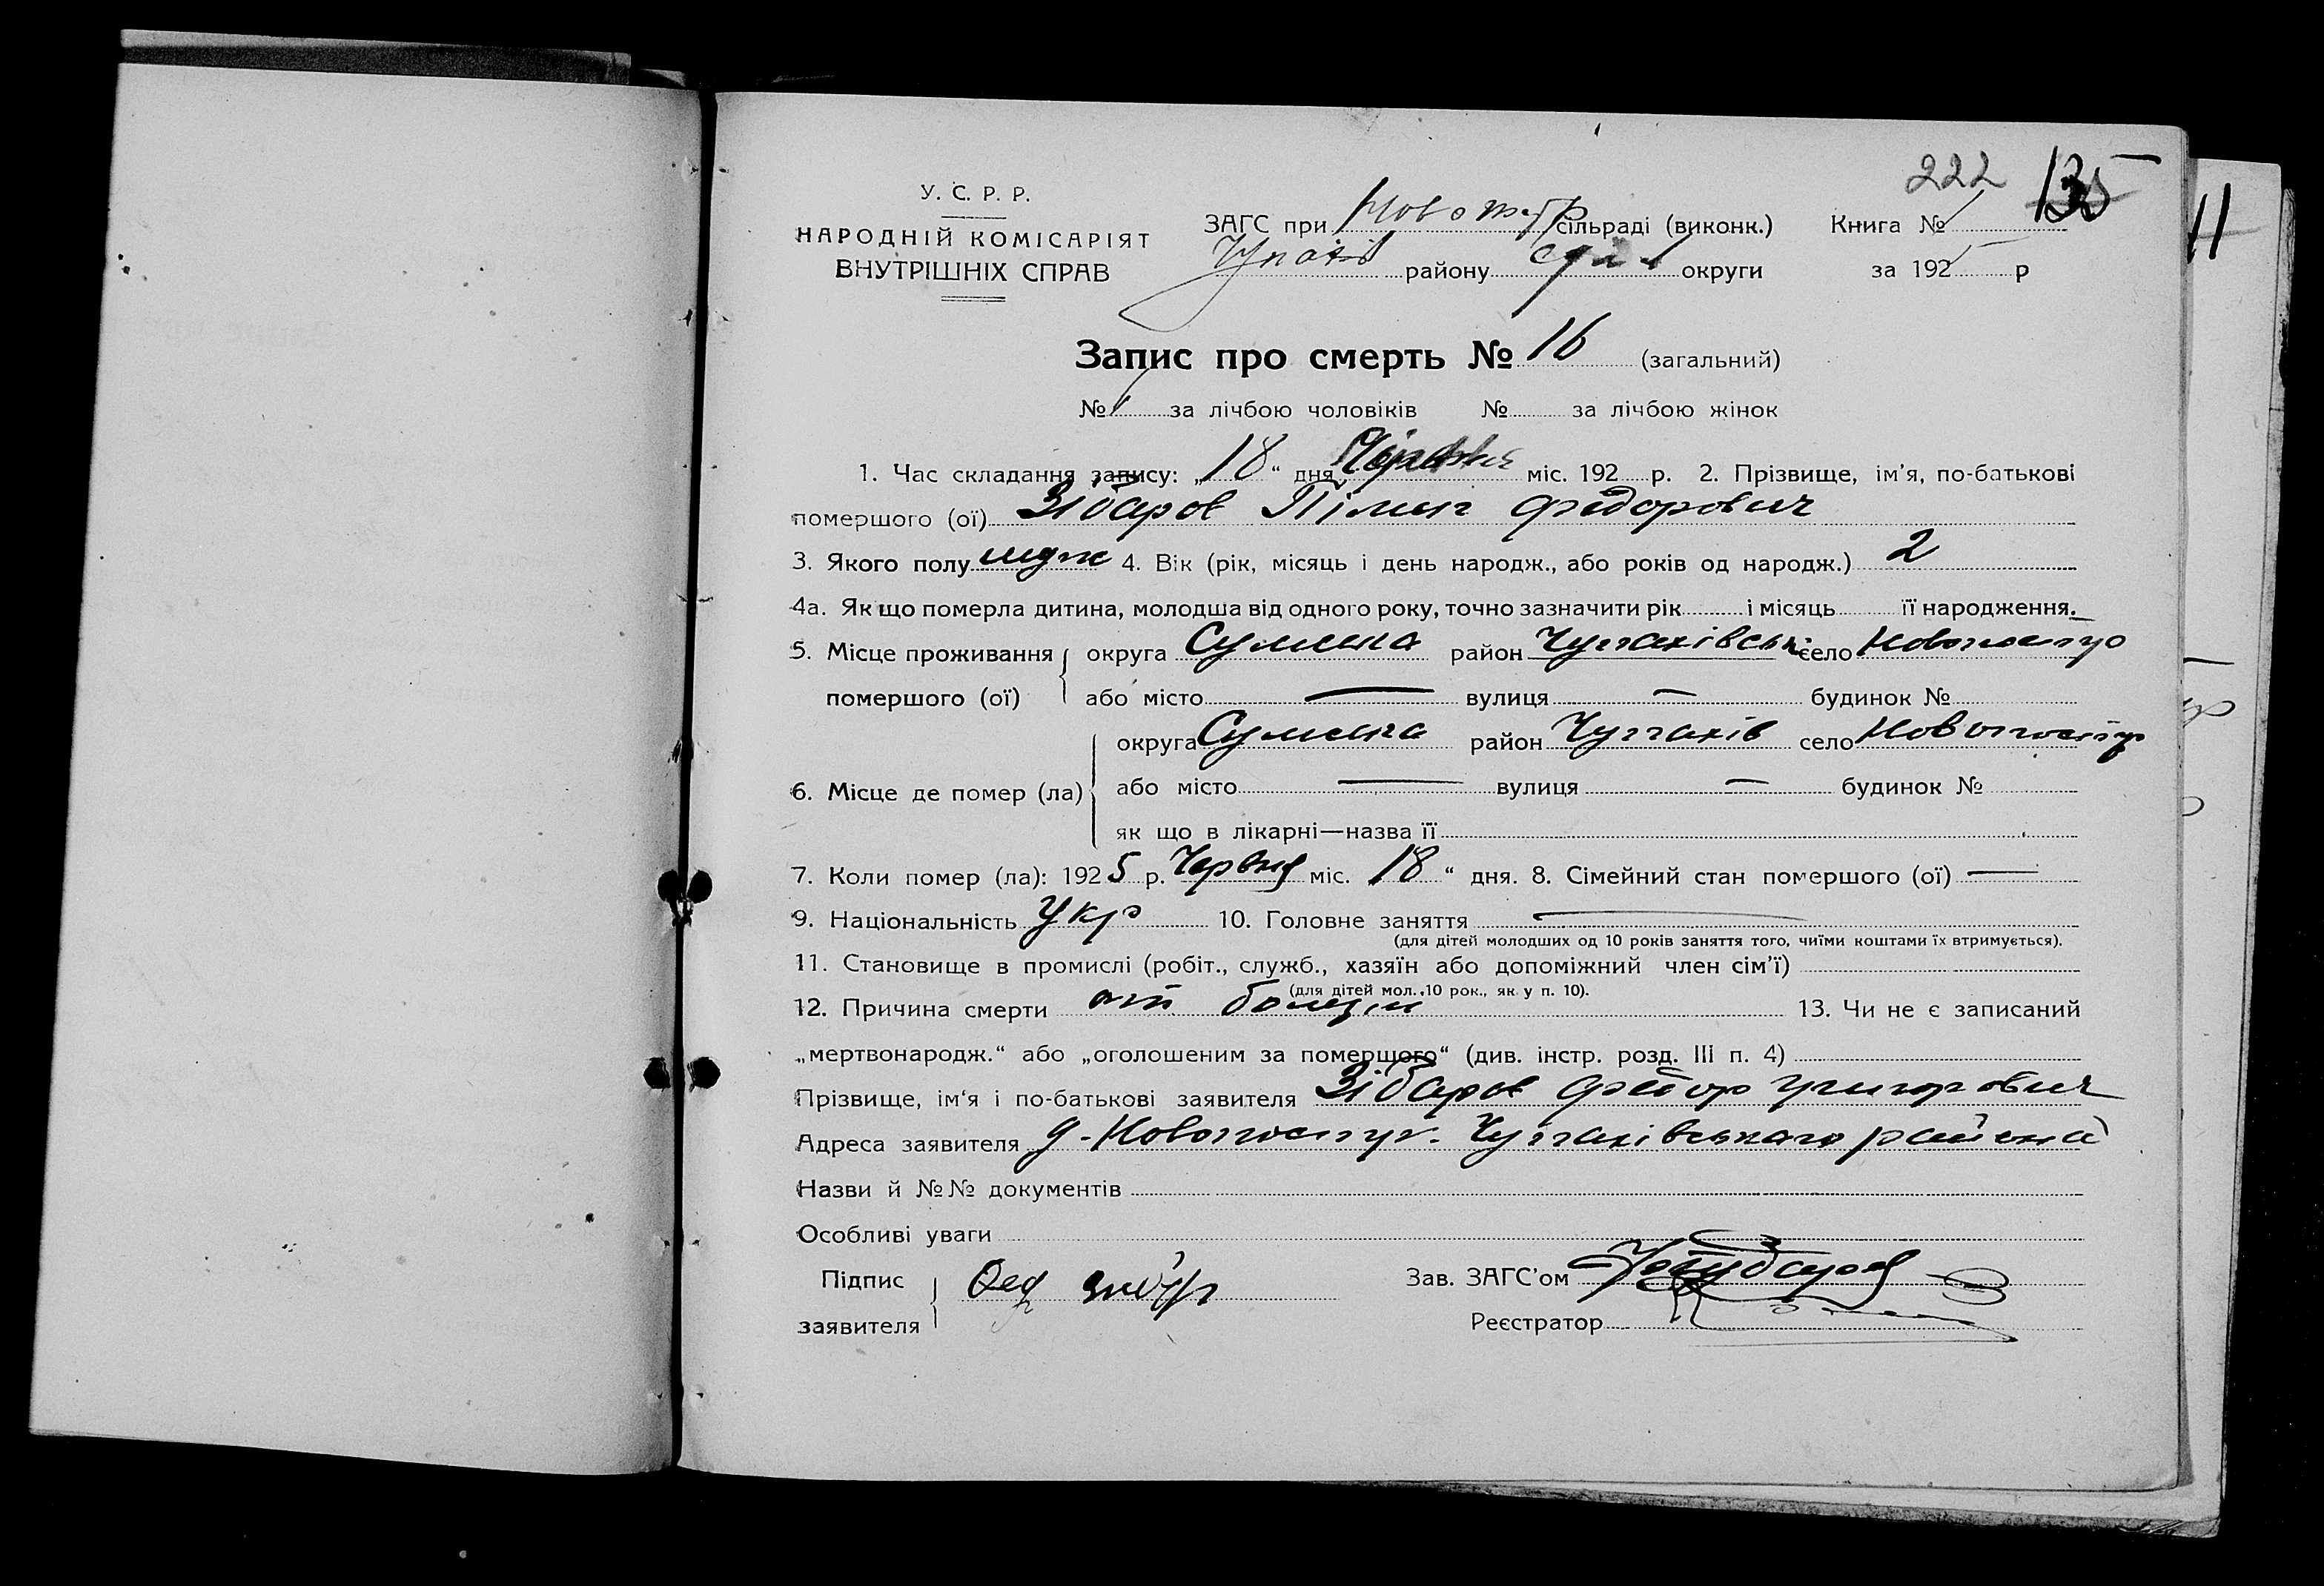 222 135
У. С. Р. Р.
НАРОДНІЙ КОМІСАРІЯТ
ВНУТРІШНІХ СПРАВ
ЗАГС при сільраді (виконк.) Книга №
району округи за 192 5 р
11
Запис про смерть № 16 (загальний)
№ за лічбою чоловіків № за лічбою жінок
1. Час складання запису: „18“ дня Червня міс. 192 р. 2. Прізвище, ім’я, по-батькові
помершого (ої) Зібаров Пімен Федорович
3. Якого полу муж 4. Вік (рік, місяць і день народж., або років од народж.) 2
4а. Як що померла дитина, молодша від одного року, точно зазначити рік і місяць її народження.
5. Місце проживання округа Сумська район Чупахівськ село
помершого (ої) або місто — вулиця — будинок №
округа Сумська район Чупахів село
6. Місце де помер (ла)
або місто — вулиця — будинок №
як що в лікарні—назва її
7. Коли помер (ла): 1925 р. Червня міс. 18“ дня. 8. Сімейний стан помершого (ої) —
9. Національність Укр 10. Головне заняття —
(для дітей молодших од 10 років заняття того, чиїми коштами їх втримується).
11. Становище в промислі (робіт., служб., хазяїн або допоміжний член сім’ї)
(для дітей мол. 10 рок., як у п. 10).
12. Причина смерти от болезни 13. Чи не є записаний
„мертвонародж.“ або „оголошеним за помершого“ (див. інстр. розд. III п. 4)
Прізвище, ім‘я і по-батькові заявителя Зібаров Федор Григорович
Адреса заявителя Чупахівського района
Назви й №№ документів
Особливі уваги
Підпис Зав. ЗАГС’ом
заявителя Реєстратор